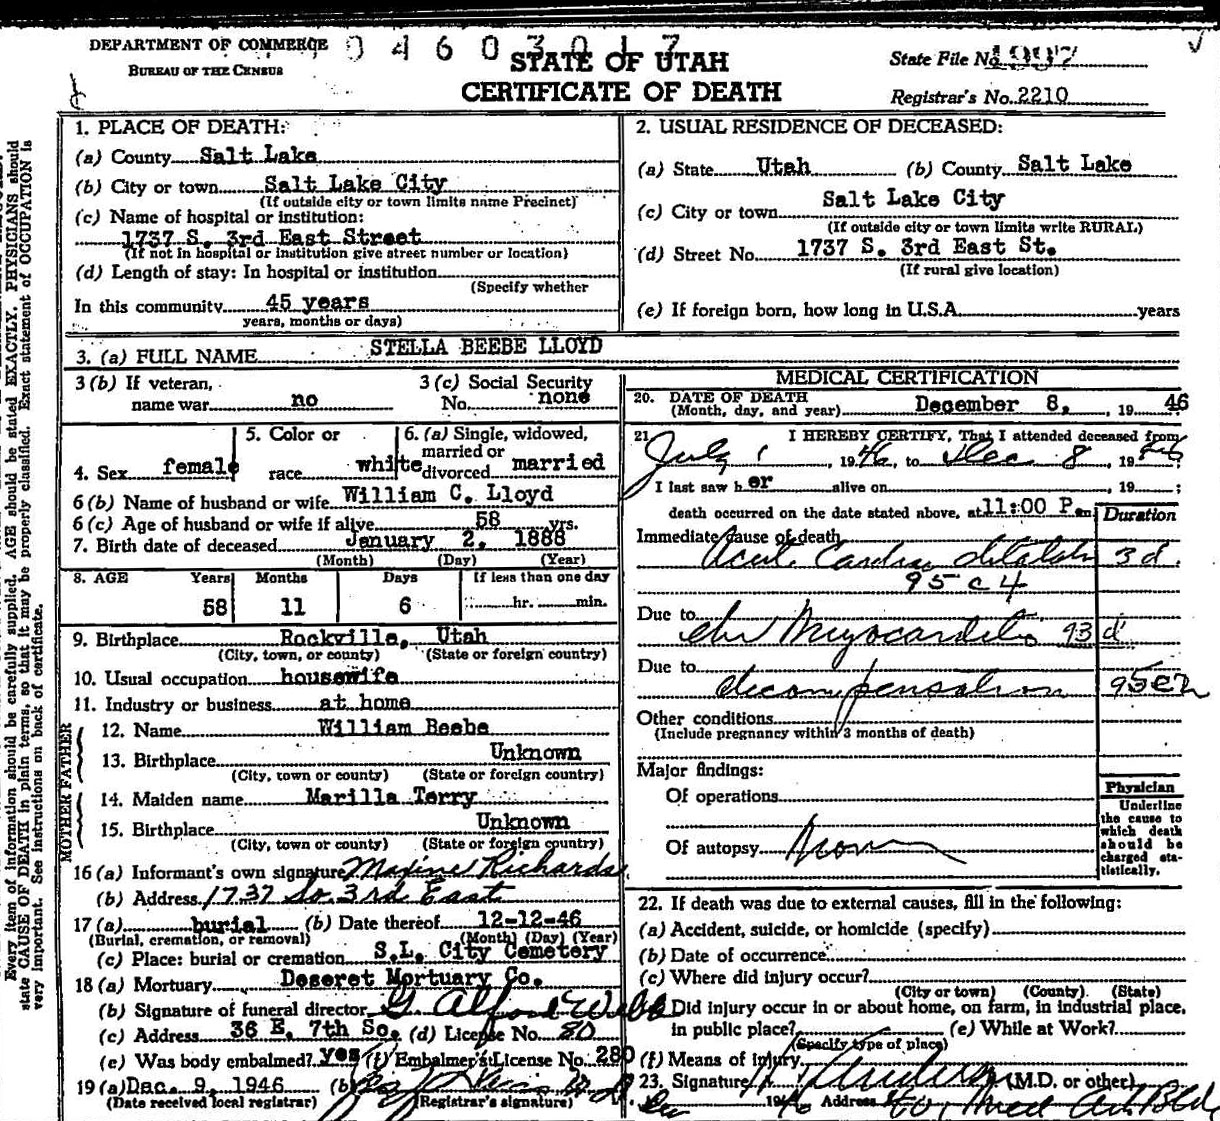 DEPARTMENT OF COMMERCE
BUREAU OF THE CENSUS
0 4 6 0 3 0 1 7
STATE OF UTAH
CERTIFICATE OF DEATH
State File No. 1997
Registrar's No. 2210
Every item of information should be carefully supplied. AGE should be stated EXACTLY. PHYSICIANS should
state CAUSE OF DEATH in plain terms, so that it may be properly classified. Exact statement of OCCUPATION is
very important. See instructions on back of certificate.
1. PLACE OF DEATH:
(a) County Salt Lake
(b) City or town Salt Lake City
(If outside city or town limits name Precinct)
(c) Name of hospital or institution:
1737 S. 3rd East Street
(If not in hospital or institution give street number or location)
(d) Length of stay: In hospital or institution
(Specify whether
In this community 45 years
years, months or days)
2. USUAL RESIDENCE OF DECEASED:
(a) State Utah (b) County Salt Lake
(c) City or town Salt Lake City
(If outside city or town limits write RURAL)
(d) Street No. 1737 S. 3rd East St.
(If rural give location)
(e) If foreign born, how long in U.S.A. years
3. (a) FULL NAME STELLA BEEBE LLOYD
3 (b) If veteran, name war no
3 (c) Social Security No. none
4. Sex female
5. Color or race white
6. (a) Single, widowed, married or divorced married
6 (b) Name of husband or wife William C. Lloyd
6 (c) Age of husband or wife if alive 58 yrs.
7. Birth date of deceased January 2, 1888
(Month) (Day) (Year)
8. AGE Years Months Days If less than one day
58 11 6 hr. min.
9. Birthplace Rockville, Utah
(City, town, or county) (State or foreign country)
10. Usual occupation housewife
11. Industry or business at home
FATHER
12. Name William Beebe
13. Birthplace Unknown
(City, town or county) (State or foreign country)
MOTHER
14. Maiden name Marilla Terry
15. Birthplace Unknown
(City, town or county) (State or foreign country)
16 (a) Informant's own signature Maxine Richards
(b) Address 1737 So. 3rd East
17 (a) burial (b) Date thereof 12-12-46
(Burial, cremation, or removal) (Month) (Day) (Year)
(c) Place: burial or cremation S.L. City Cemetery
18 (a) Mortuary Deseret Mortuary Co.
(b) Signature of funeral director G. Alford Webb
(c) Address 36 E. 7th So. (d) License No. 80
(e) Was body embalmed? yes (f) Embalmer's License No. 280
19 (a) Dec. 9, 1946 (b)
(Date received local registrar) (Registrar's signature)
MEDICAL CERTIFICATION
20. DATE OF DEATH
(Month, day, and year) December 8, 1946
21 I HEREBY CERTIFY, That I attended deceased from
July 1, 1946, to Dec 8, 1946
I last saw her alive on , 19 ;
death occurred on the date stated above, at 11:00 P.m.
Duration
Immediate cause of death
Acute Cardiac dilatation 3 d.
95 c 4
Due to
Chr Myocarditis 93 d
Due to
decompensation 95c2
Other conditions
(Include pregnancy within 3 months of death)
Major findings:
Of operations
Of autopsy None
Physician
Underline
the cause to
which death
should be
charged sta-
tistically.
22. If death was due to external causes, fill in the following:
(a) Accident, suicide, or homicide (specify)
(b) Date of occurrence
(c) Where did injury occur?
(City or town) (County). (State)
Did injury occur in or about home, on farm, in industrial place,
in public place? (e) While at Work?
(Specify type of place)
(f) Means of injury
23. Signature (M.D. or other)
1946 Address Med Arts Bldg